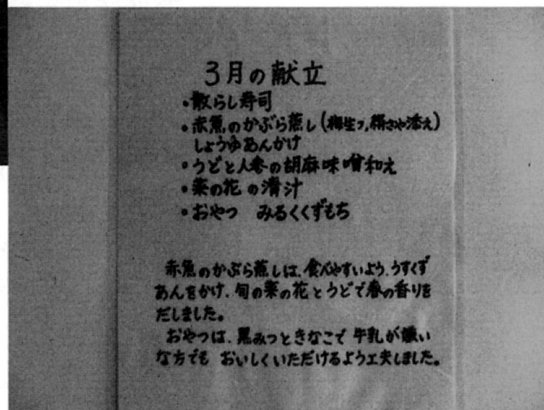 3月の献立
・散らし寿司
・赤魚のかぶら蒸し(梅生フ,絹さや添え)
しょうゆあんかけ
・うどと人参の胡麻味噌和え
・菜の花の清汁
・おやつ みるくくずもち
赤魚のかぶら蒸しは、食べやすいよう、うすくず
あんをかけ、旬の菜の花とうどで春の香りを
だしました。
おやつは、黒みつときなこで牛乳が嫌い
な方でも おいしくいただけるよう工夫しました。